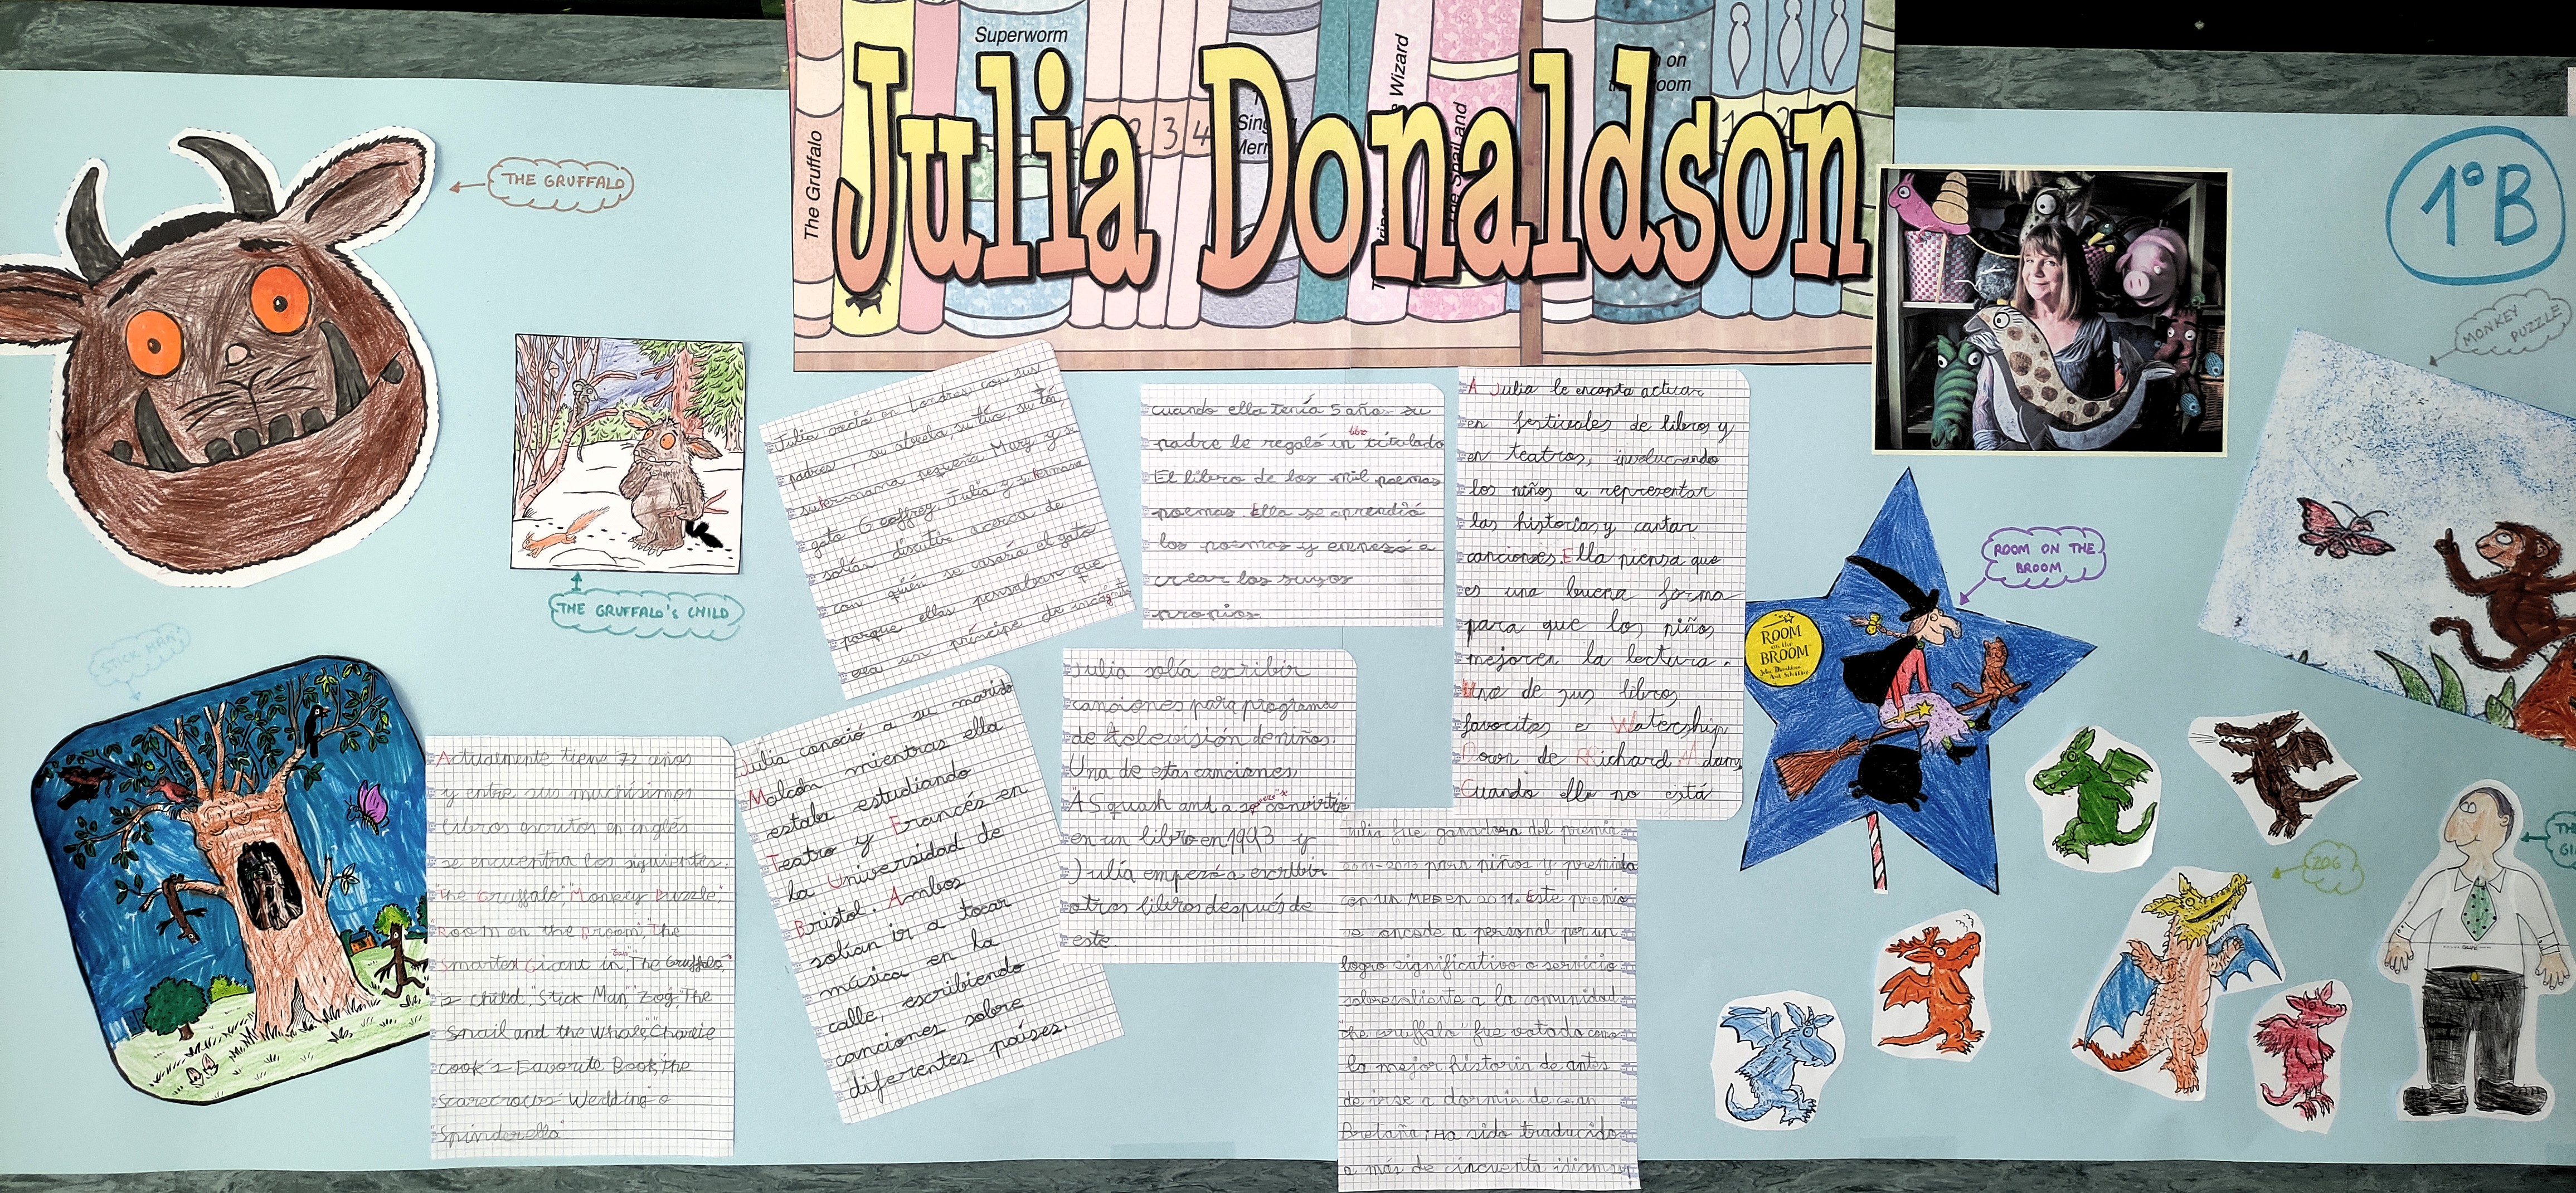 Superworm
The Gruffalo
1 2 3 4
Sing
Merm
Wizard
The Snail and
on on
the room
Julia Donaldson
1ºB
THE GRUFFALO
THE GRUFFALO'S CHILD
STICK MAN
Julia nació en Londres con sus
padres, su abuela, su tío, su tía,
su hermana pequeña Mary y su
gato Geoffrey. Julia y su hermana
solían discutir acerca de
con quién se casaría el gato
porque ellas pensaban que
era un príncipe de incógnito
cuando ella tenía 5 años su
padre le regaló un libro titulado
El libro de los mil poemas
poemas. Ella se aprendió
los poemas y empezó a
crear los suyos
propios
A Julia le encanta actuar
en festivales de libros y
en teatros, involucrando
los niños a representar
las historias y cantar
canciones. Ella piensa que
es una buena forma
para que los niños
mejoren la lectura.
Uno de sus libros
favoritos e Watership
Down de Richard Adams
Cuando ella no está
Actualmente tiene 72 años
y entre sus muchísimos
libros escritos en inglés
se encuentra los siguientes:
"The Gruffalo", "Monkey Puzzle",
"Room on the Broom", "The
Smartest Giant in Town", "The Gruffalo,
s child", "Stick Man", "Zog" The
Snail and the Whale", Charlie
cook's Favorite Book, the
scarecrows' Wedding o
"Spinderella"
Julia conoció a su marido
Malcom mientras ella
estaba estudiando
Teatro y Francés en
la Universidad de
Bristol. Ambos
solían ir a tocar
música en la
calle, escribiendo
canciones sobre
diferentes países.
Julia solía escribir
canciones para programas
de televisión de niños.
Una de estas canciones,
"A Squash and a squeeze" se convirtió
en un libro en 1993 y
Julia empezó a escribir
otros libros después de
este
Julia fue ganadora del premio
2011-2013 para niños y premiada
con un MBE en 2011. Este premio
se concede a personal por un
logro significativo o servicio
sobresaliente a la comunidad
"the Gruffalo" fue votada como
la mejor historia de antes
de irse a dormir de Gran
Bretaña; Ha sido traducido
a más de cincuenta idiomas
ROOM ON THE
BROOM
ROOM
on the
BROOM
Julia Donaldson
Axel Scheffler
MONKEY
PUZZLE
ZOG
GLUE